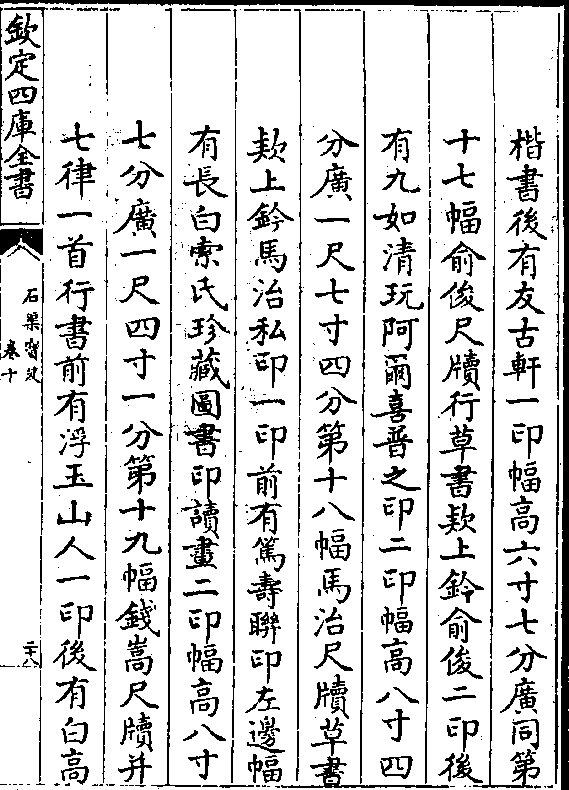 楷書後有友古軒一印幅高六寸七分廣同第
十七幅俞俊尺牘行草書款上鈐俞俊二印後
有九如清玩阿爾喜普之印二印幅高八寸四
分廣一尺七寸四分第十八幅馬治尺牘草書
款上鈐馬治私印一印前有篤壽聯印左邊幅
有長白索氏珍藏圖書印讀畫二印幅高八寸
七分廣一尺四寸一分第十九幅錢嵩尺牘并
七律一首行書前有浮玉山人一印後有白高
欽定四庫全書
石渠寶笈
卷十
二十八